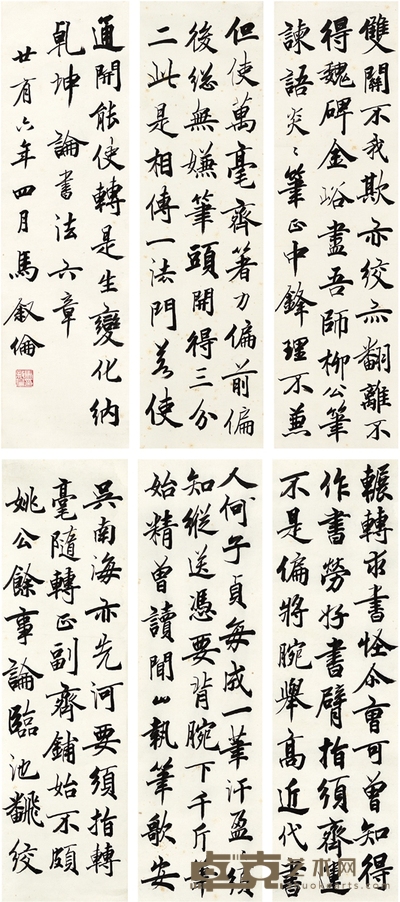 輾轉求書怪尒曹可曾知得
作書勞好書臂指須齊運
不是偏將腕舉高近代書
人何子貞每成一筆汗盈〻須
知縱送憑要背腕下千斤筆
始精曾讀聞山執筆歌安
吳南海亦先河要須指轉
毫隨轉正副齊鋪始不頗
姚公餘事論臨池翻絞
雙關不我欺亦絞亦翻離不
得魏碑金峪盡吾師柳公筆
諫語炎〻筆正中鋒理不兼
但使萬毫齊著力偏前偏
後總無嫌筆頭開得三分
二此是相傳一法門若使
通開能使轉是生變化納
乾坤 論書法六章
廿有六年四月馬敘倫
卓克艺术网